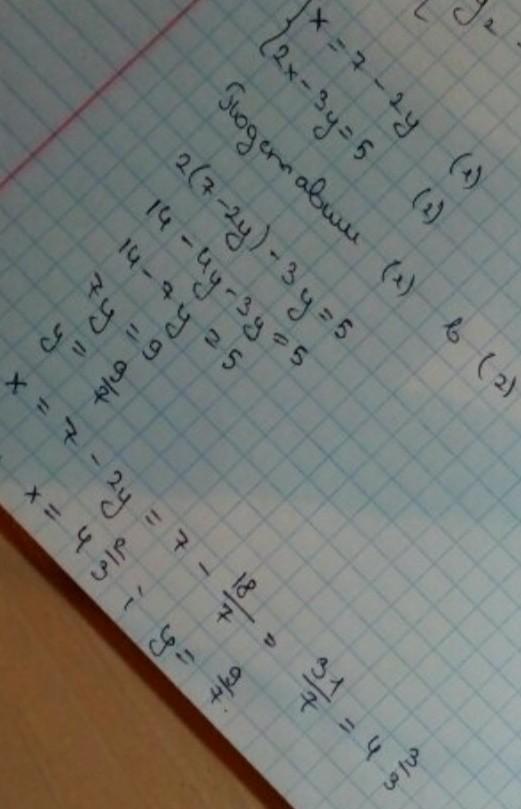 { x = 7 - 2y (1)
{ 2x - 3y = 5 (2)
Подставим (1) в (2)
2(7 - 2y) - 3y = 5
14 - 4y - 3y = 5
14 - 7y = 5
7y = 9
y = 9/7
x = 7 - 2y = 7 - 18/7 = 31/7 = 4 3/3